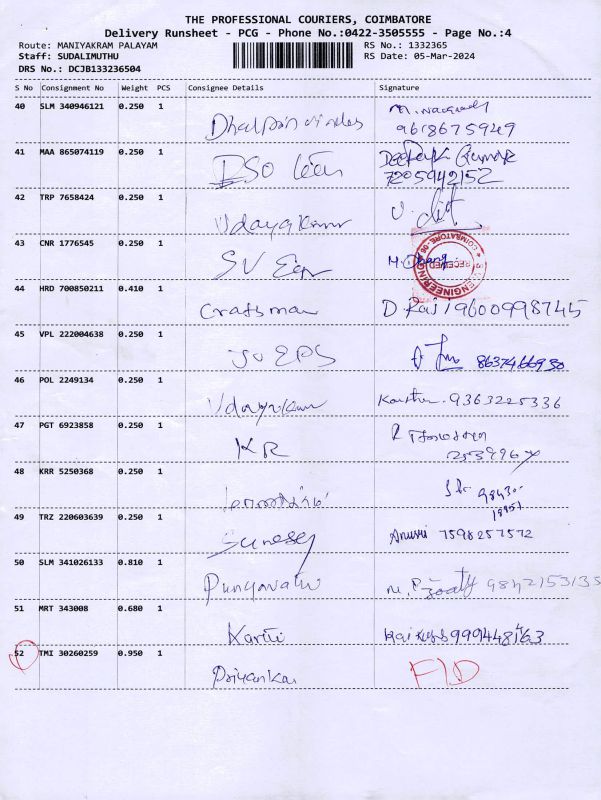 THE PROFESSIONAL COURIERS, COIMBATORE
Delivery Runsheet - PCG - Phone No.:0422-3505555 - Page No.:4
Route: MANIYAKRAM PALAYAM RS No.: 1332365
Staff: SUDALIMUTHU RS Date: 05-Mar-2024
DRS No.: DCJB133236504
S No Consignment No Weight PCS Consignee Details Signature
40 SLM 340946121 0.250 1
9618675949
41 MAA 865074119 0.250 1 Deepak Kumar
7205942152
42 TRP 7658424 0.250 1
Udayakumar
43 CNR 1776545 0.250 1
SV
COIMBATORE RECEIVED ENGINEERING
44 HRD 700850211 0.410 1
Craftsman D. Raj / 9600998745
45 VPL 222004638 0.250 1
EPS 8637466930
46 POL 2249134 0.250 1
Udayakumar 9363225336
47 PGT 6923858 0.250 1
KR
48 KRR 5250368 0.250 1
49 TRZ 220603639 0.250 1
7598257572
50 SLM 341026133 0.810 1
9842153135
51 MRT 343008 0.680 1
52 TMI 30260259 0.950 1
Priyanka